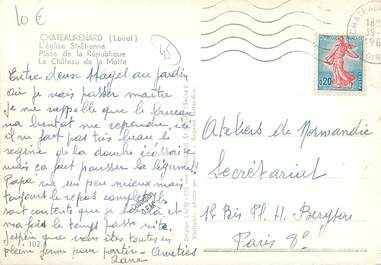 10 €
CHATEAURENARD (Loiret)
L'église St-Etienne
Place de la République
Le Château de la Motte
45
Entre deux stages au jardin
où je vais passer maître
je me rappelle que le bureau
va bientôt me reprendre, ici
il ne fait pas très beau le
régime de la douche écossaise
mais ça fait pousser les légumes!!
Papa va un peu mieux mais
toujours le repos complet. Ils
sont contents que je sois là et
ma fois le temps passe vite.
J'espère que vous êtes toutes en
pleine forme pour partir - Amitiés
102
0,20
Ateliers de Normandie
Secrétariat
12 bis Rue Ph. H. Bergson
Paris 8e